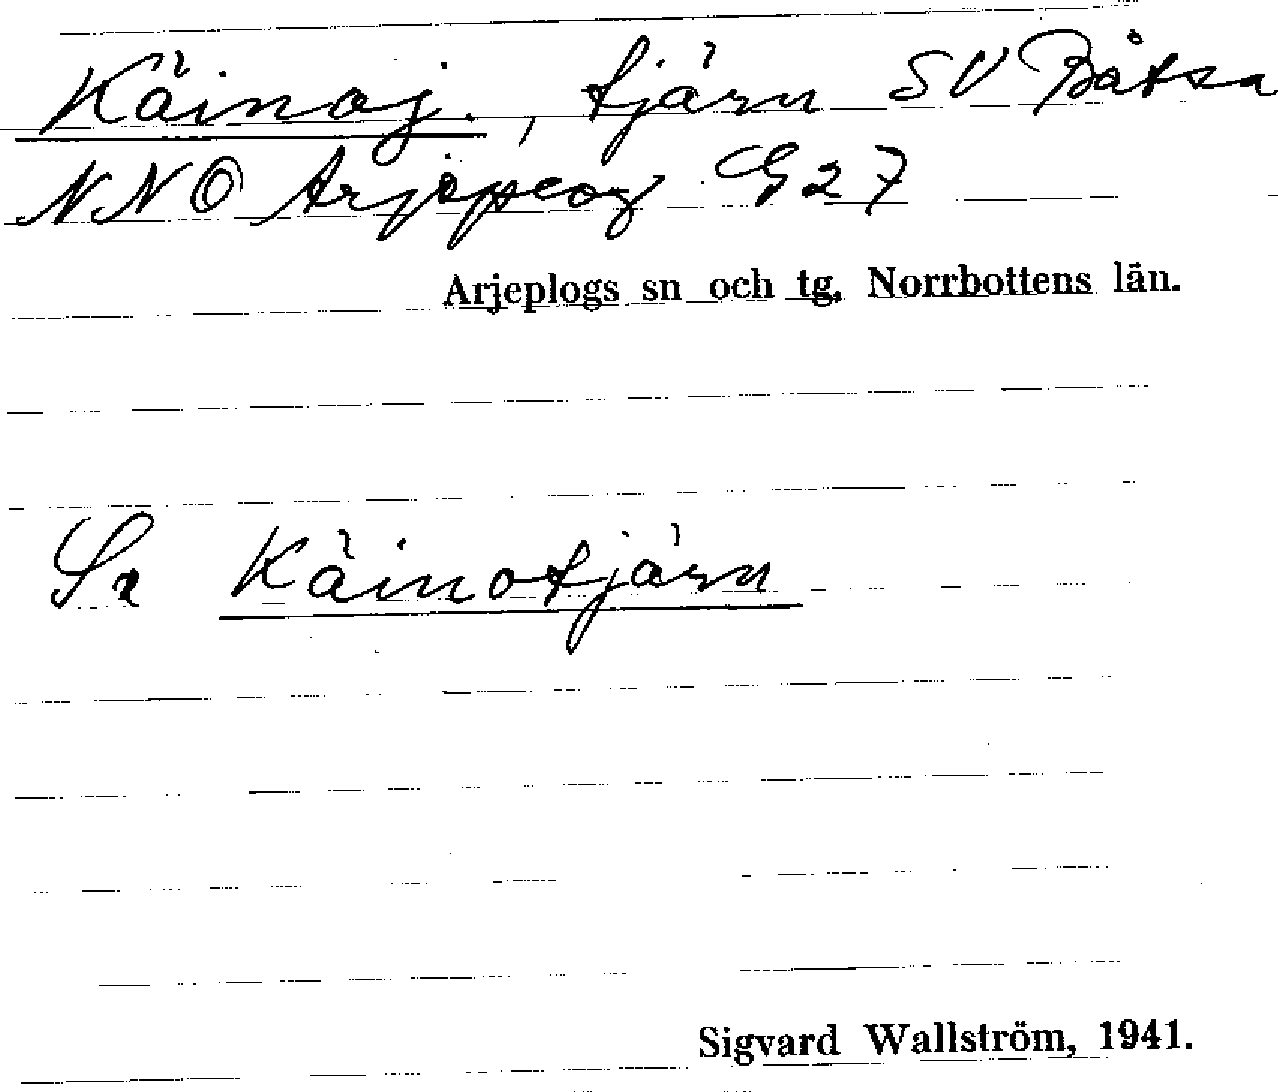 Käinaj., tjärn SV Båtsa
NNO Arjeplog G27
Arjeplogs sn och tg, Norrbottens län.
Se Käinotjärn
Sigvard Wallström, 1941.